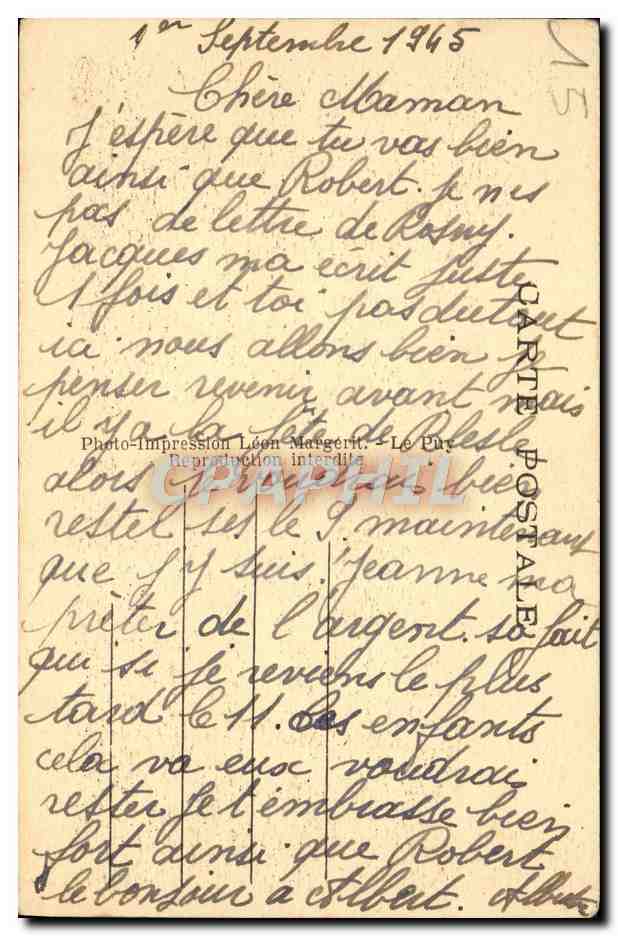 1er Septembre 1945
15
Chère Maman
J'espère que tu vas bien
ainsi que Robert. Je
pas de lettre de Rosny.
Jacques ma écrit juste
1 fois et toi pas du tout
ici nous allons bien je
penser revenir avant mais
il y a la fête de Blesle
alors je voudrai bien
restel ses le 9 maintenant
que j'y suis. Jeanne ma
prêter de l'argent. sa fait
qui si je reviens le plus
tard le 11. Les enfants
cela va eux voudrai
rester Je t'embrasse bien
fort ainsi que Robert
le bonjour a Albert.
CARTE POSTALE
Photo-Impression Léon Margerit. - Le Puy
Reproduction interdite
CPAPHIL